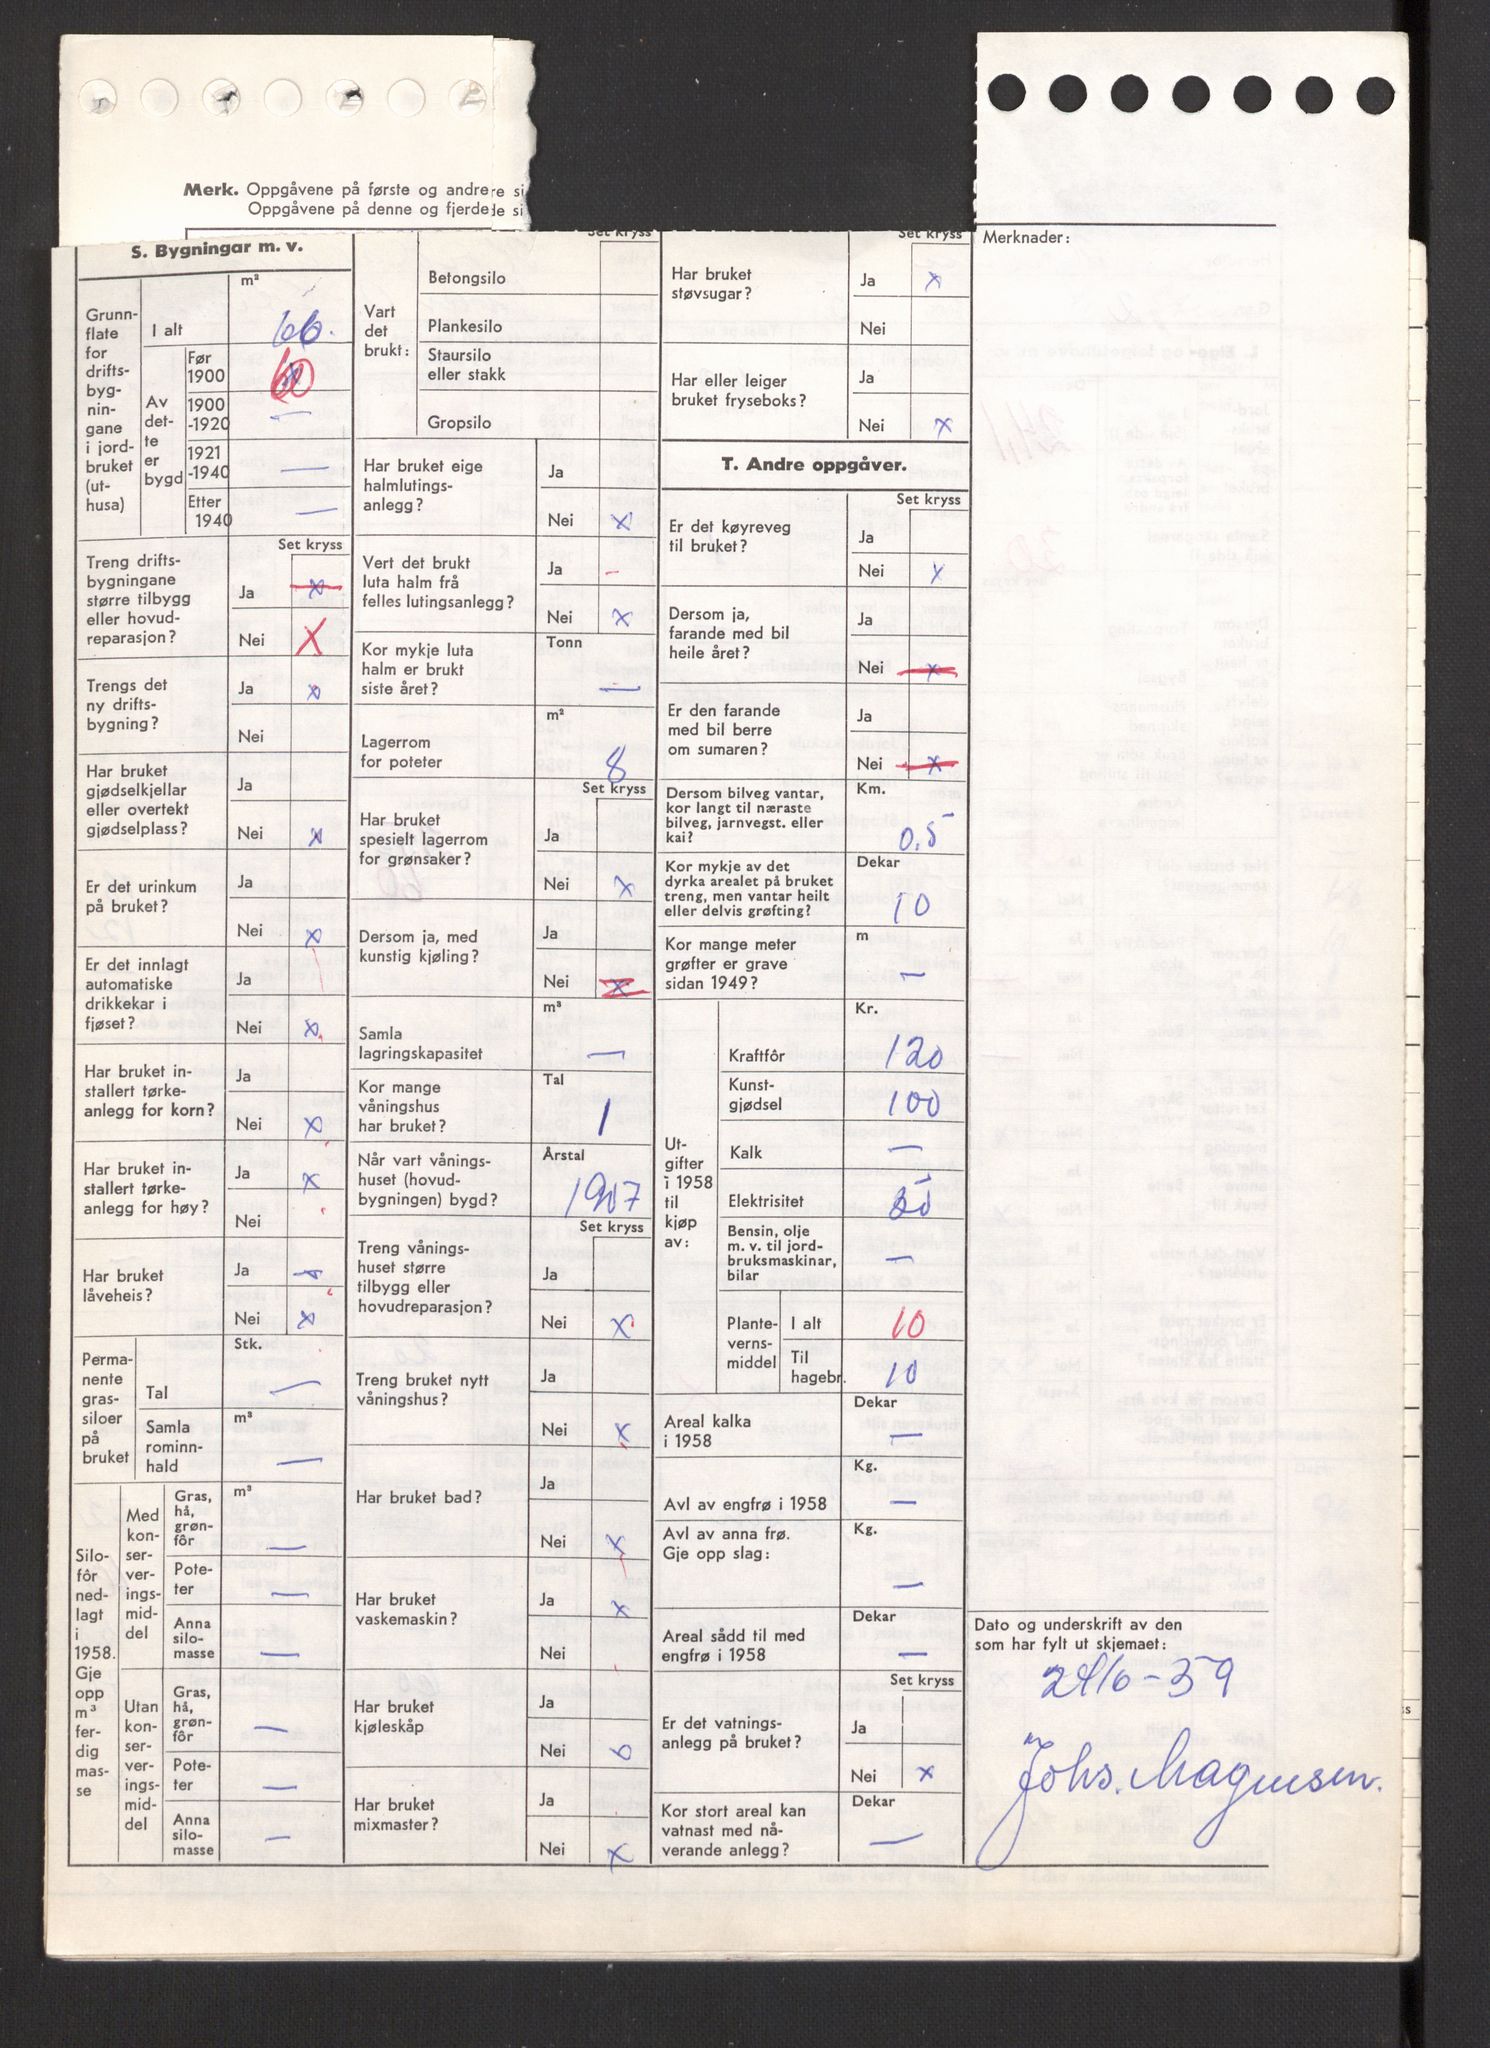 Merk. Oppgåvene på første og andre
Oppgåvene på denne og fjerde
S. Bygningar m. v.
Grunn-
flate
for
drifts-
byg-
nin-
gane
i jord-
bruket
(ut-
husa)
m²
I alt 66.
Av
det-
te
er
bygd
Før
1900 60
1900
-1920 —
1921
-1940 —
Etter
1940 —
Set kryss
Treng drifts-
bygningane
større tilbygg
eller hovud-
reparasjon?
Ja x
Nei X
Trengs det
ny drifts-
bygning?
Ja x
Nei
Har bruket
gjødselkjellar
eller overtekt
gjødselplass?
Ja
Nei x
Er det urinkum
på bruket?
Ja
Nei x
Er det innlagt
automatiske
drikkekar i
fjøset?
Ja
Nei x
Har bruket in-
stallert tørke-
anlegg for korn?
Ja
Nei x
Har bruket in-
stallert tørke-
anlegg for høy?
Ja x
Nei
Har bruket
låveheis?
Ja
Nei x
Perma-
nente
gras-
siloer
på
bruket
Stk.
Tal —
m³
Samla
rominn-
hald —
Silo-
fôr
ned-
lagt
i
1958.
Gje
opp
m³
fer-
dig
mas-
se
Med
kon-
ser-
ver-
ings-
mid-
del
m³
Gras,
hå,
grøn-
fôr —
Pote-
ter —
Anna
silo-
masse —
Utan
kon-
ser-
ver-
ings-
mid-
del
Gras,
hå,
grøn-
fôr —
Pote-
ter —
Anna
silo-
masse —
Set kryss
Vart
det
brukt:
Betongsilo
Plankesilo
Staursilo
eller stakk
Gropsilo
Har bruket eige
halmlutings-
anlegg?
Ja
Nei x
Vert det brukt
luta halm frå
felles lutingsanlegg?
Ja –
Nei x
Kor mykje luta
halm er brukt
siste året?
Tonn
—
Lagerrom
for poteter
m²
8
Set kryss
Har bruket
spesielt lagerrom
for grønsaker?
Ja
Nei x
Dersom ja, med
kunstig kjøling?
Ja
Nei x
Samla
lagringskapasitet
m³
—
Kor mange
våningshus
har bruket?
Tal
1
Når vart vånings-
huset (hovud-
bygningen) bygd?
Årstal
1907
Set kryss
Treng vånings-
huset større
tilbygg eller
hovudreparasjon?
Ja
Nei x
Treng bruket nytt
våningshus?
Ja
Nei x
Har bruket bad?
Ja
Nei x
Har bruket
vaskemaskin?
Ja x
Nei
Har bruket
kjøleskåp
Ja
Nei
Har bruket
mixmaster?
Ja
Nei x
Set kryss
Har bruket
støvsugar?
Ja x
Nei
Har eller leiger
bruket fryseboks?
Ja
Nei x
T. Andre oppgåver.
Set kryss
Er det køyreveg
til bruket?
Ja
Nei x
Dersom ja,
farande med bil
heile året?
Ja
Nei x
Er den farande
med bil berre
om sumaren?
Ja
Nei x
Dersom bilveg vantar,
kor langt til næraste
bilveg, jarnvegst. eller
kai?
Km.
0.5
Kor mykje av det
dyrka arealet på bruket
treng, men vantar heilt
eller delvis grøfting?
Dekar
10
Kor mange meter
grøfter er grave
sidan 1949?
m
—
Ut-
gifter
i 1958
til
kjøp
av:
Kr.
Kraftfôr 120
Kunst-
gjødsel 100
Kalk —
Elektrisitet
Bensin, olje
m. v. til jord-
bruksmaskinar,
bilar —
Plante-
verns-
middel
I alt 10
Til
hagebr. 10
Areal kalka
i 1958
Dekar
—
Avl av engfrø i 1958
Kg.
—
Avl av anna frø.
Gje opp slag:
Kg.
—
Areal sådd til med
engfrø i 1958
Dekar
—
Set kryss
Er det vatnings-
anlegg på bruket?
Ja
Nei x
Kor stort areal kan
vatnast med nå-
verande anlegg?
Dekar
—
Merknader:
Dato og underskrift av den
som har fylt ut skjemaet:
24/6-59
Johs. Magnussen.